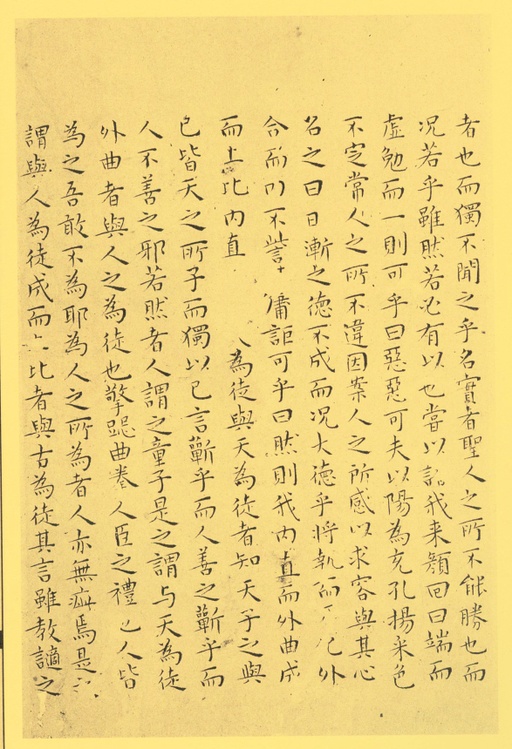 者也而獨不聞之乎名實者聖人之所不能勝也而
况若乎雖然若必有以也嘗以語我来顔回曰端而
虛勉而一則可乎曰惡惡可夫以陽為充孔揚采色
不定常人之所不違因案人之所感以求容與其心
名之曰日漸之德不成而况大德乎將執而 外
合而内不訾 庸詎可乎曰然則我内直而外曲成
而上比内直 為徒與天為徒者知天子之與
已皆天之所子而獨以已言蘄乎而人善之蘄乎而
人不善之邪若然者人謂之童子是之謂与天為徒
外曲者與人之為徒也擎跽曲拳人臣之禮也人皆
為之吾敢不為耶為人之所為者人亦無疵焉是之
謂與人為徒成而上比者與古為徒其言雖教讁之